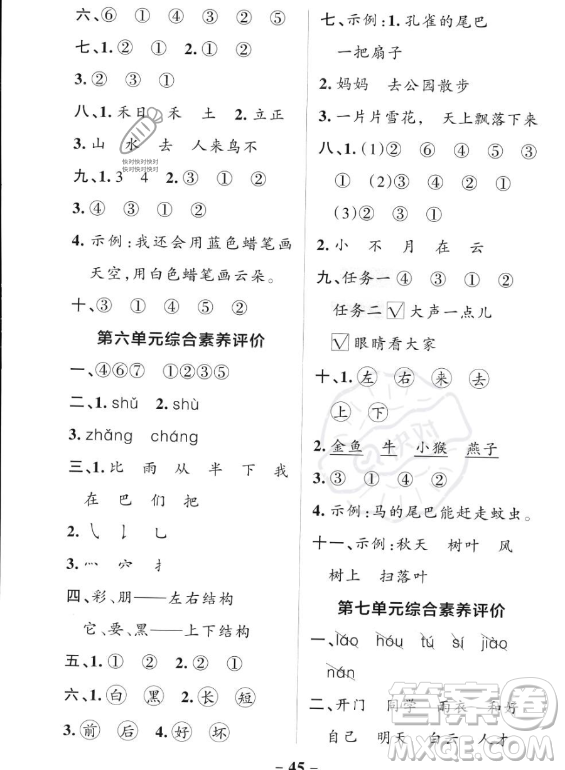 六、⑥ ① ④ ② ⑤ ③
七、1. ② ①  2. ② ①
3. ② ③ ①
八、1. 禾日 禾 土 2. 立正
3. 山 水 去 人来鸟不
快对快对快对
快对快对快对
九、1. 3 4 2. ① ③ ②
3. ④ ③ ① ②
4. 示例：我还会用蓝色蜡笔画
天空，用白色蜡笔画云朵。
十、③ ① ④ ⑤ ②
第六单元综合素养评价
一、④⑥⑦ ①②③⑤
二、1. shǔ 2. shù
3. zhǎng cháng
三、1. 比 雨 从 半 下 我
在 巴 们 把
2. ㇏ 亅 乚
3. 宀 扌
四、彩、朋——左右结构
它、要、黑——上下结构
五、1. ① ② 2. ② ①
六、1. 白 黑 2. 长 短
3. 前 后 4. ② ①
七、示例：1. 孔雀的尾巴
一把扇子
2. 妈妈 去公园散步
3. 一片片雪花， 天上飘落下来
八、1. (1) ② ⑥ ④ ⑤
③ ① (2) ③ ① ②
(3) ② ① ③
2. 小 不 月 在 云
九、任务一 ④ ③ ① ②
任务二 ☑ 大声一点儿
☑ 眼睛看大家
十、1. 左 右 来 去
上 下
2. 金鱼 牛 小猴 燕子
3. ③ ① ④ ②
4. 示例：马的尾巴能赶走蚊虫。
十一、示例：秋天 树叶 风
树上 扫落叶
第七单元综合素养评价
一、láo hóu tú sí jiào
nán
二、开门 同学 雨衣 和好
自己 明天 白云 人才
答案圈
- 45 -